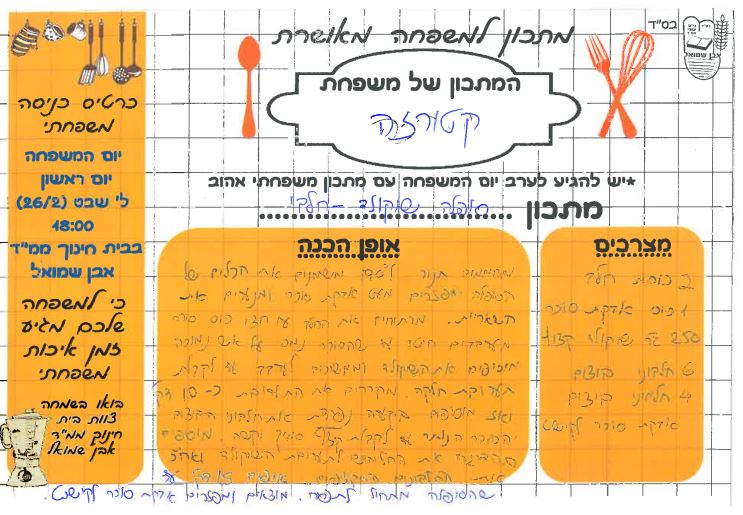 בס"ד
אבן שמואל
מתכון למשפחה מאושרת
המתכון של משפחת
קטורזה
*יש להגיע לערב יום המשפחה עם מתכון משפחתי אהוב
מתכון סופלה שוקולד - חלבי
כרטיס כניסה
משפחתי
יום המשפחה
יום ראשון
ל' שבט (26/2)
18:00
בבית חינוך ממ"ד
אבן שמואל
כי למשפחה
שלכם מגיע
זמן איכות
משפחתי
בואו בשמחה
צוות בית
חינוך ממ"ד
אבן שמואל
מצרכים
2 כוסות חלב
1 כוס אבקת סוכר
250 גר שוקולד קצוץ
6 חלבוני ביצים
4 חלמוני ביצים
אבקת סוכר לקישוט
אופן הכנה
מחממים תנור משמנים את הכלים של
הסופלה ומפזרים מעט אבקת סוכר ומנערים את
השאריות. מרתיחים את החלב עם חצי כוס סוכר
מערבבים היטב עד שהסוכר נמס על אש נמוכה
מוסיפים את השוקולד וממשיכים לערבב עד לקבלת
תערובת חלקה. מקררים את התערובת כ- דק
ואז מוסיפים בקערה נפרדת את חלבוני הביצים
הסוכר הנותר עד לקבלת קצף סמיך וקשה. מוסיפים
את החלמונים לתערובת השוקולד ואח"כ
את החלבונים אופים עד
שהסופלה מתחיל לתפוח. מוצאים ומפזרים אבקת סוכר לקישוט.